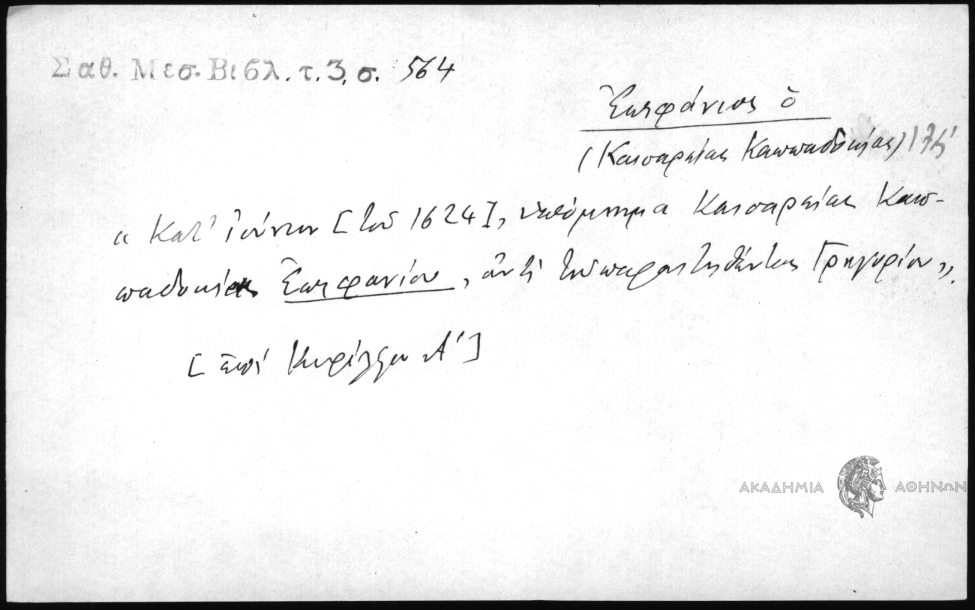 Σαθ. Μεσ. Βιβλ. τ. 3, σ. 564
Ἐπιφάνιος ὁ
(Καισαρείας Καππαδοκίας) ΙΖʹ
« Κατ' Ἰούνιον [τοῦ 1624], ὑπόμνημα Καισαρείας Καπ-
παδοκίας Ἐπιφανίου, ἀντὶ τοῦ παραιτηθέντος Γρηγορίου».
[ἐπὶ Κυρίλλου Α']
ΑΚΑΔΗΜΙΑ ΑΘΗΝΩΝ